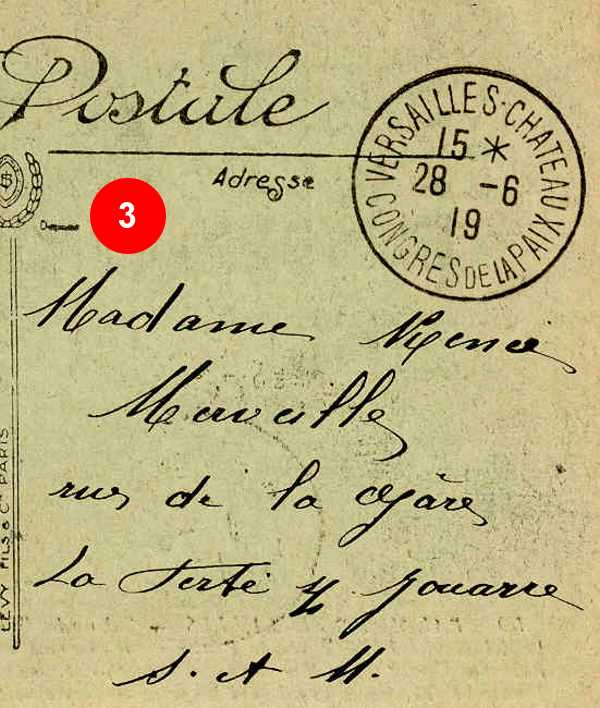 Postale
Adresse
VERSAILLES-CHATEAUX
15 *
28 -6
19
CONGRES DE LA PAIX
3
Madame
rue de la gare
La Ferté s/ Jouarre
S. et M.
LEVY FILS & Cie PARIS